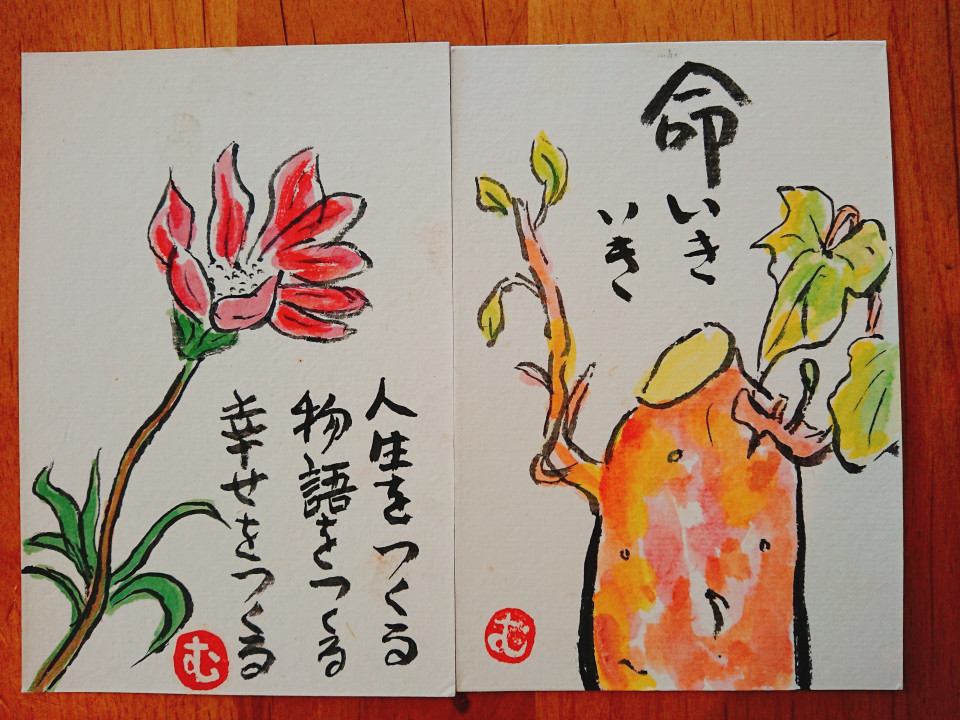 人生をつくる
物語をつくる
幸せをつくる
む
命
いき
いき
む